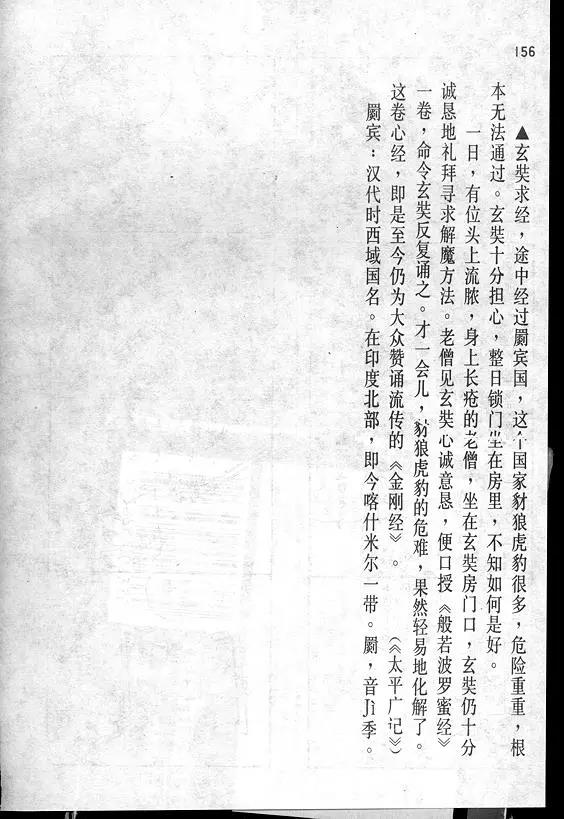 156
▲玄奘求经，途中经过罽宾国，这个国家豺狼虎豹很多，危险重重，根
本无法通过。玄奘十分担心，整日锁门坐在房里，不知如何是好。
一日，有位头上流脓，身上长疮的老僧，坐在玄奘房门口，玄奘仍十分
诚恳地礼拜寻求解魔方法。老僧见玄奘心诚意恳，便口授《般若波罗蜜经》
一卷，命令玄奘反复诵之。才一会儿，豺狼虎豹的危难，果然轻易地化解了。
这卷心经，即是至今仍为大众赞诵流传的《金刚经》。（《太平广记》）
罽宾：汉代时西域国名。在印度北部，即今喀什米尔一带。罽，音Jì季。